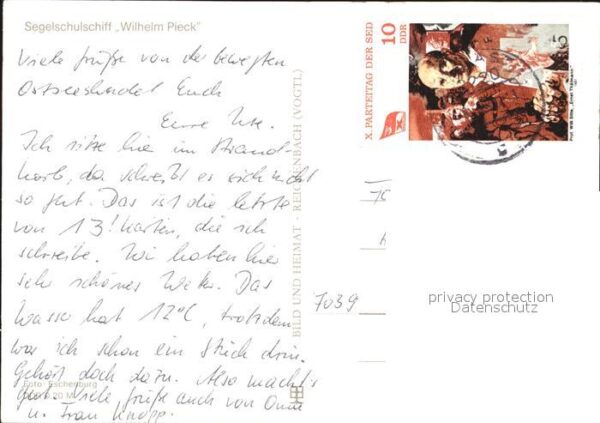 Segelschulschiff „Wilhelm Pieck"
Viele Grüße von der bewegten
Ostsee sendet Euch
Eure Ute.
Ich sitze hier im Strand-
korb, da schreibt es sich nicht
so gut. Das ist die letzte
von 13! Karten, die ich
schreibe. Wir haben hier
sehr schönes Wetter. Das
Wasser hat 12°C, trotzdem
war ich schon ein Stück drin.
Gehört doch dazu. Also macht's
gut. Viele Grüße auch von
u. Frau
Foto: Eschenburg
BILD UND HEIMAT · REICHENBACH (VOGTL)
X. PARTEITAG DER SED
10
DDR
7039
privacy protection
Datenschutz